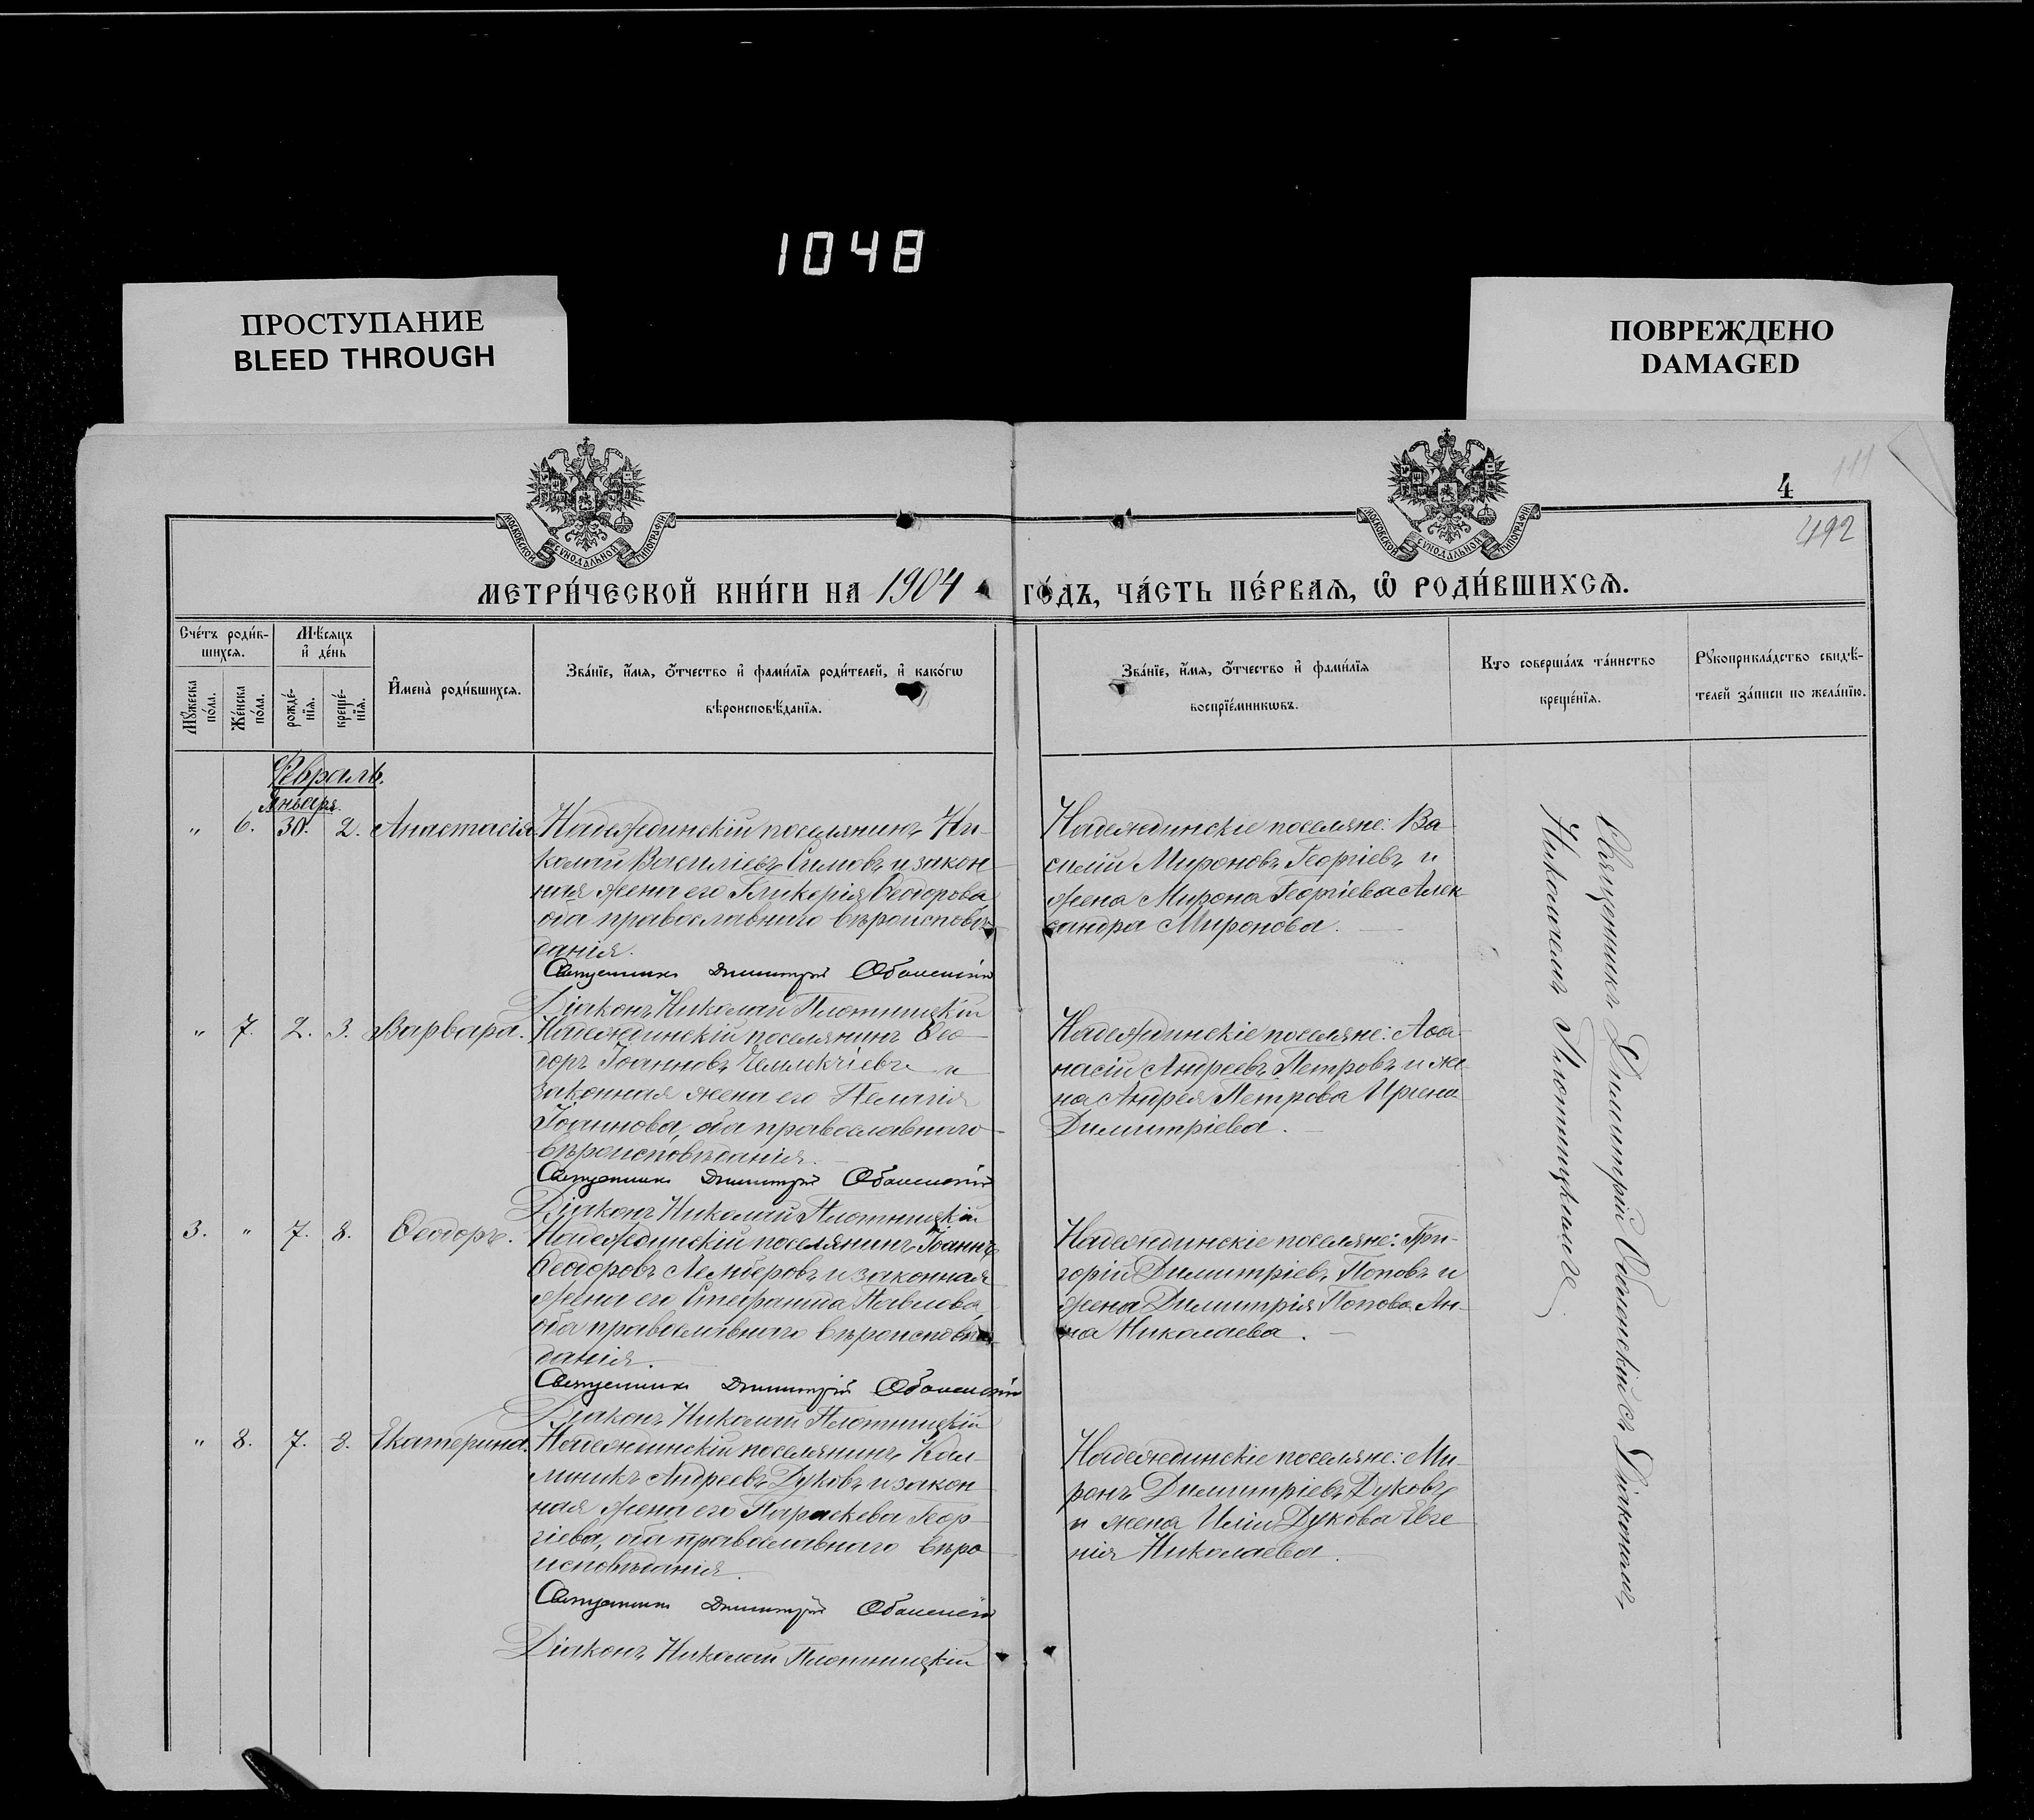 1048
ПРОСТУПАНИЕ
BLEED THROUGH
ПОВРЕЖДЕНО
DAMAGED
МОСКОВСКОЙ СУНОДАЛЬНОЙ ТИПОГРАФІИ
МОСКОВСКОЙ СУНОДАЛЬНОЙ ТИПОГРАФІИ
111
4
492
МЕТРИ́ЧЕСКОЙ КНИ́ГИ НА 1904 ГО́ДЪ, ЧА́СТЬ ПЕ́РВАѦ, Ѽ РОДИ́ВШИХСѦ.
Сче́тъ роди́вшихсѧ.
Мꙋ́жеска по́ла.
Же́нска по́ла.
Мѣ́сѧцъ и҆ де́нь
рожде́нїѧ.
креще́нїѧ.
И҆мена̀ роди́вшихсѧ.
Зва́нїе, и҆́мѧ, ѻ҆́тчество и҆ фами́лїѧ роди́телей, и҆ како́гѡ
вѣроисповѣ́данїѧ.
Зва́нїе, и҆́мѧ, ѻ҆́тчество и҆ фами́лїѧ
воспрїе́мникѡвъ.
Кто̀ соверша́лъ та́инство
креще́нїѧ.
Рꙋкоприкла́дство свидѣ́-
телей за́писи по жела́нїю.
Февраль.
Января.
" 6. 30. 2. Анастасія
Надеждинскій поселянинъ Ни-
колай Василіевъ Симовъ и закон
ная жена его Гликерія Ѳеодорова
оба православнаго вѣроисповѣ-
данія.
Священникъ Димитрій Оболенскій
Діаконъ Николай Плотницкій
Надеждинскіе поселяне: Ва
силій Мироновъ Георгіевъ и
жена Мирона Георгіева Алек
сандра Миронова.
" 7. 2. 3. Варвара.
Надеждинскій поселянинъ Ѳео-
доръ Іоанновъ и
законная жена его Пелагія
Іоаннова, оба православнаго
вѣроисповѣданія.
Священникъ Димитрій Оболенскій
Діаконъ Николай Плотницкій
Надеждинскіе поселяне: Аѳа-
насій Андреевъ Петровъ и же-
на Андрея Петрова Ирина
Димитріева.
3. " 7. 8. Ѳеодоръ.
Надеждинскій поселянинъ Іоаннъ
Ѳеодоровъ и законная
жена его Стефанида Павлова
оба православнаго вѣроисповѣ-
данія.
Священникъ Димитрій Оболенскій
Діаконъ Николай Плотницкій
Надеждинскіе поселяне: Гри-
горій Димитріевъ Поповъ и
жена Димитрія Попова Ан-
на Николаева.
" 8. 7. 8. Екатерина.
Надеждинскій поселянинъ Кал-
линикъ Андреевъ Дуковъ и закон
ная жена его Параскева Геор-
гіева, оба православнаго вѣро
исповѣданія.
Священникъ Димитрій Оболенскій
Діаконъ Николай Плотницкій
Надеждинскіе поселяне: Ми-
ронъ Димитріевъ Дуковъ
и жена Иліи Дукова Евге
нія Николаева.
Священникъ Димитрій Оболенскій съ Діакономъ
Николаемъ Плотницкимъ.